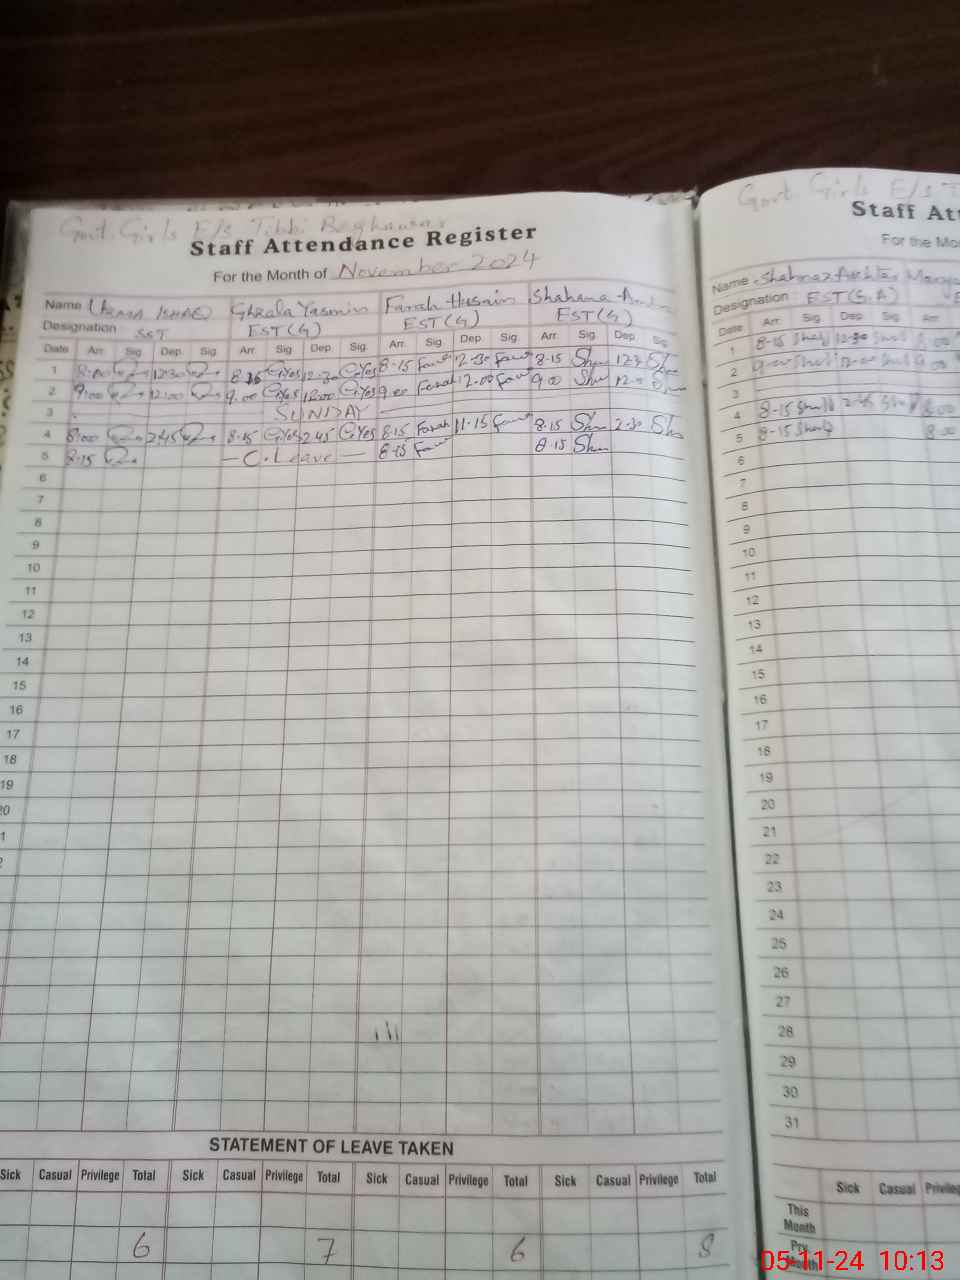 Govt. Girls E/s Tibbi
Staff Attendance Register
For the Month of November 2024
Name Uzma Ishaq Ghzala Yasmin Farah Husnain Shahana
Designation SST EST(G) EST(G) EST(G)
Date Arr. Sig. Dep. Sig. Arr. Sig. Dep. Sig. Arr. Sig. Dep. Sig. Arr. Sig. Dep. Sig.
1 8:00 12:30 8.15 12.30 8-15 12-30 8-15 Sha 12-30
2 9:00 12:00 9.00 12.00 9.00 Farah 12.00 9.00 Sha 12-0
3 SUNDAY
4 8:00 2:45 8.15 2.45 8.15 Farah 11.15 8.15 Sha 2-30
5 8.15 — C. Leave — 8.15 8.15 Sha
6
7
8
9
10
11
12
13
14
15
16
17
18
19
20
1
2
STATEMENT OF LEAVE TAKEN
Sick Casual Privilege Total Sick Casual Privilege Total Sick Casual Privilege Total Sick Casual Privilege Total
6 7 6 8
Govt. Girls E/s T
Staff Att
For the Mo
Name Shahnaz Akhtar
Designation EST(S.A)
Date Arr. Sig. Dep. Sig. Arr.
1 8-15 12-30 8:00
2 9-00 12-00 9:00
3
4 8-15 2-45 8:00
5 8-15 8:00
6
7
8
9
10
11
12
13
14
15
16
17
18
19
20
21
22
23
24
25
26
27
28
29
30
31
Sick Casual Privileg
This Month
Prv. Month
05-11-24 10:13